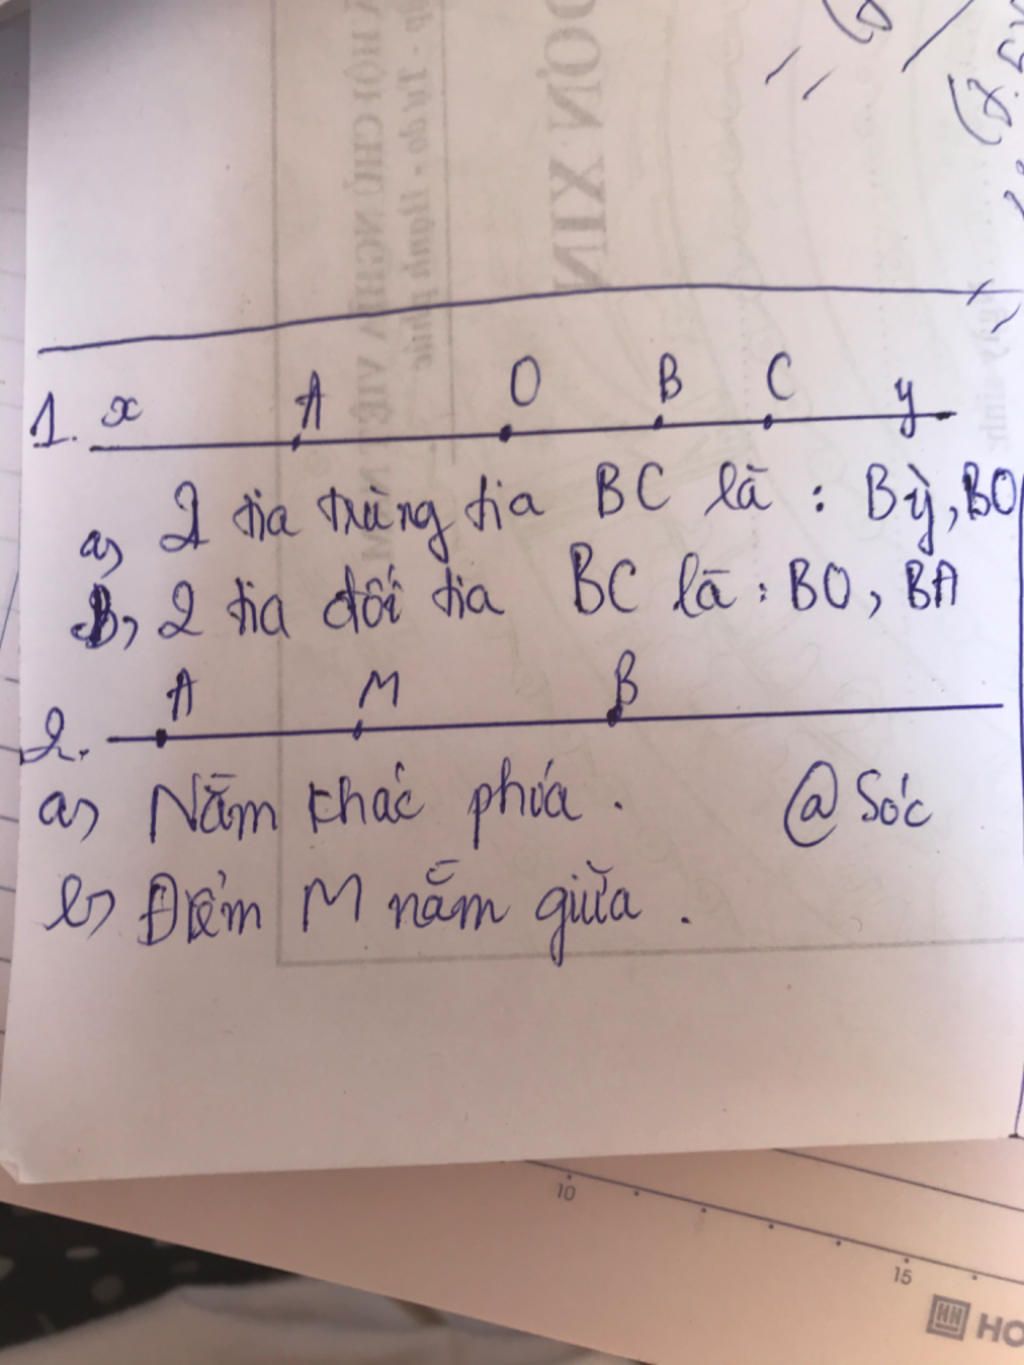 1. x A O B C y
a, 2 tia trùng tia BC là : By, BO
b, 2 tia đối tia BC là : BO, BA
A M B
2.
a) Nằm khác phía . @ Sóc
b) Điểm M nằm giữa .
10
15
HO
ĐƠN XIN